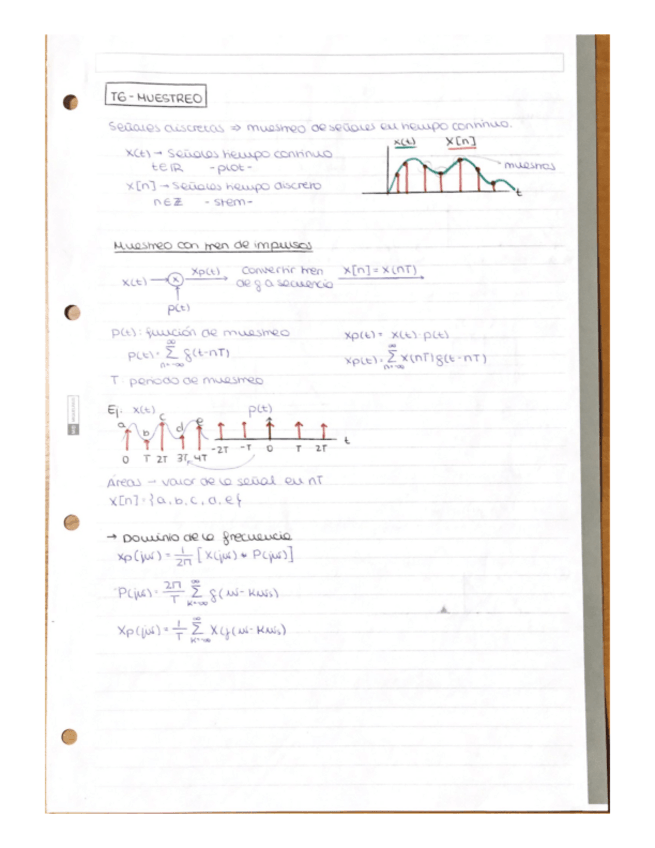 T6 - MUESTREO
Señales discretas ⇒ muestreo de señales en tiempo continuo.
x(t) → Señales tiempo continuo
t∈ℝ - plot -
x[n] → Señales tiempo discreto
n∈ℤ - stem -
x(t) x[n]
muestras
t
Muestreo con tren de impulsos
x(t) → x xp(t) convertir tren de δ a secuencia x[n] = x(nT)
p(t)
p(t): función de muestreo
p(t) = Σ δ(t-nT)
n=-∞ ∞
T: periodo de muestreo
xp(t) = x(t) · p(t)
xp(t) = Σ x(nT) δ(t-nT)
n=-∞ ∞
Ej: x(t) p(t)
a b c d e
0 T 2T 3T 4T
-2T -T 0 T 2T t
Áreas → valor de la señal en nT
x[n] = {a, b, c, d, e}
→ Dominio de la frecuencia
Xp(jω) = 1/2π [X(jω) * P(jω)]
P(jω) = 2π/T Σ δ(ω - kωs)
k=-∞ ∞
Xp(jω) = 1/T Σ X(j(ω - kωs)
k=-∞ ∞